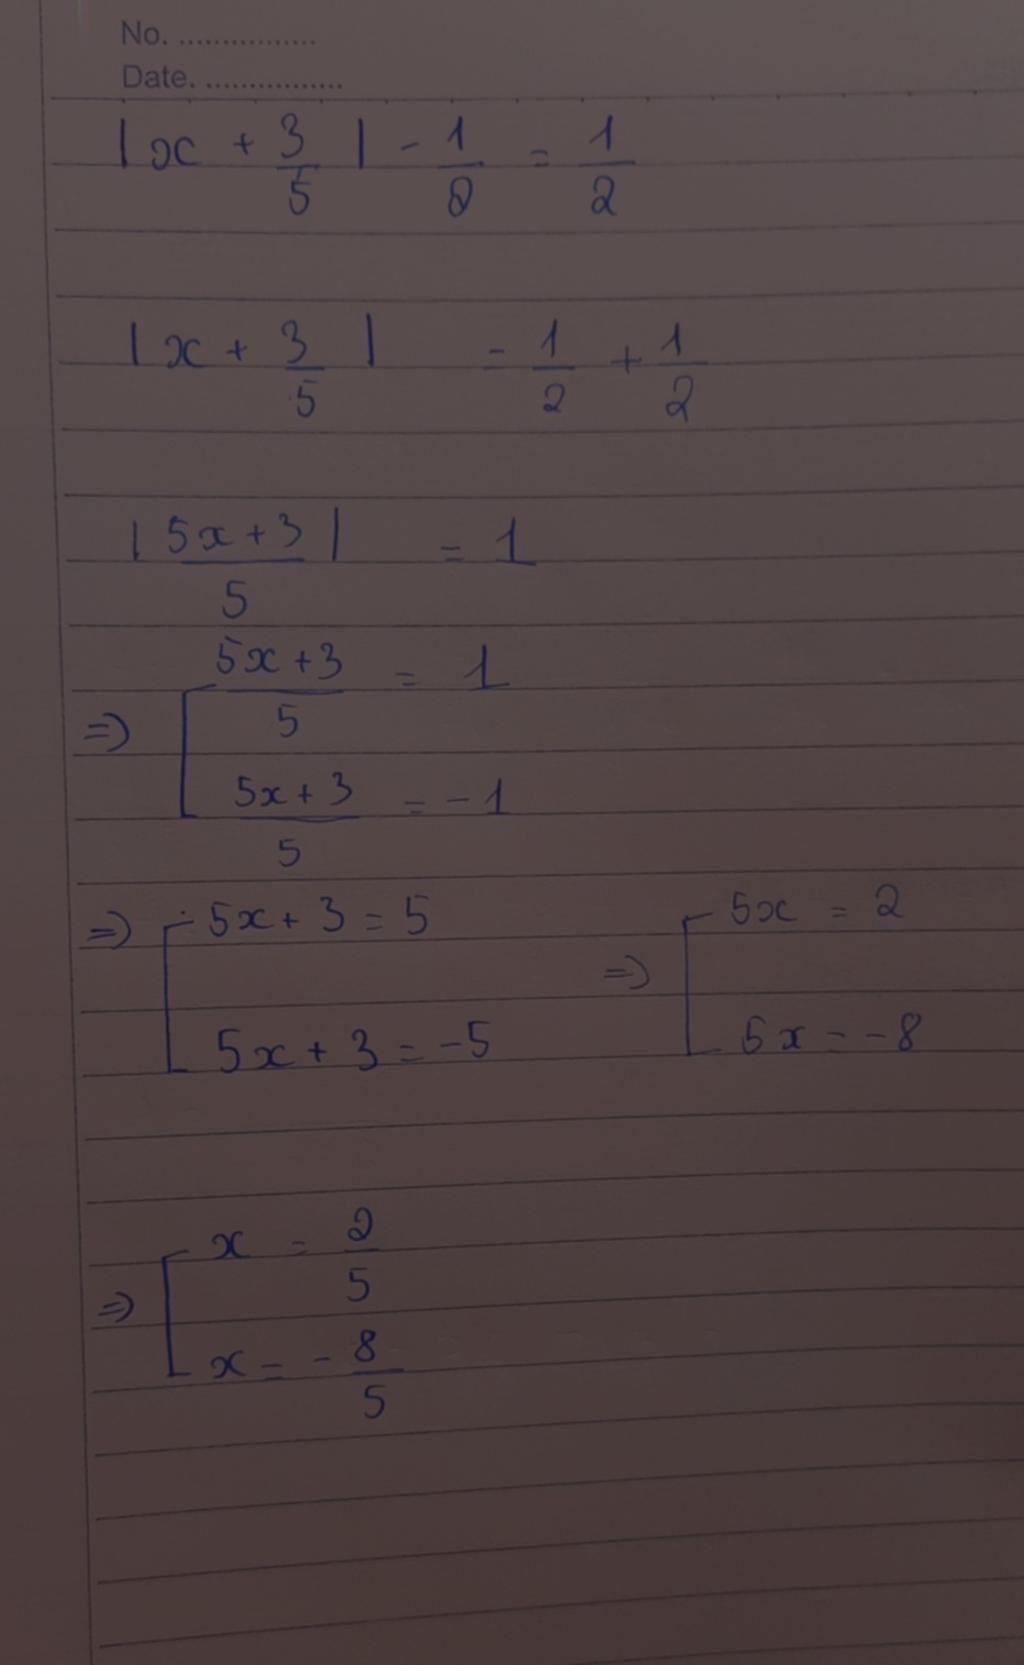 No. ................
Date. ................
|x + 3/5| - 1/2 = 1/2
|x + 3/5| = 1/2 + 1/2
|(5x+3)/5| = 1
=> [ (5x+3)/5 = 1
(5x+3)/5 = -1
=> [ 5x + 3 = 5 => [ 5x = 2
5x + 3 = -5 5x = -8
=> [ x = 2/5
x = - 8/5